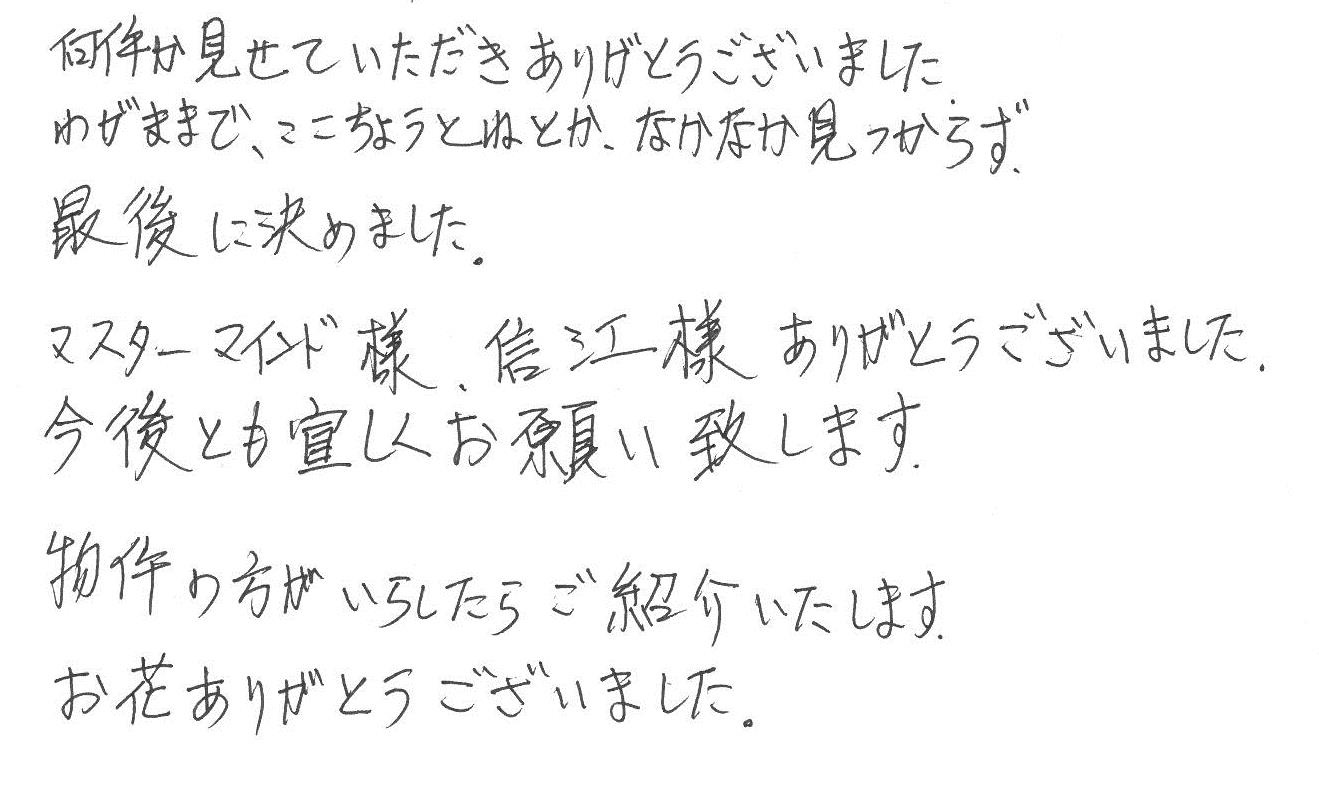 何件か見せていただきありがとうございました
わがままで、ここちょうとねとか、なかなか見つからず、
最後に決めました。
マスターマインド様、信江様ありがとうございました。
今後とも宜しくお願い致します。
物件の方がいらしたらご紹介いたします。
お花ありがとうございました。